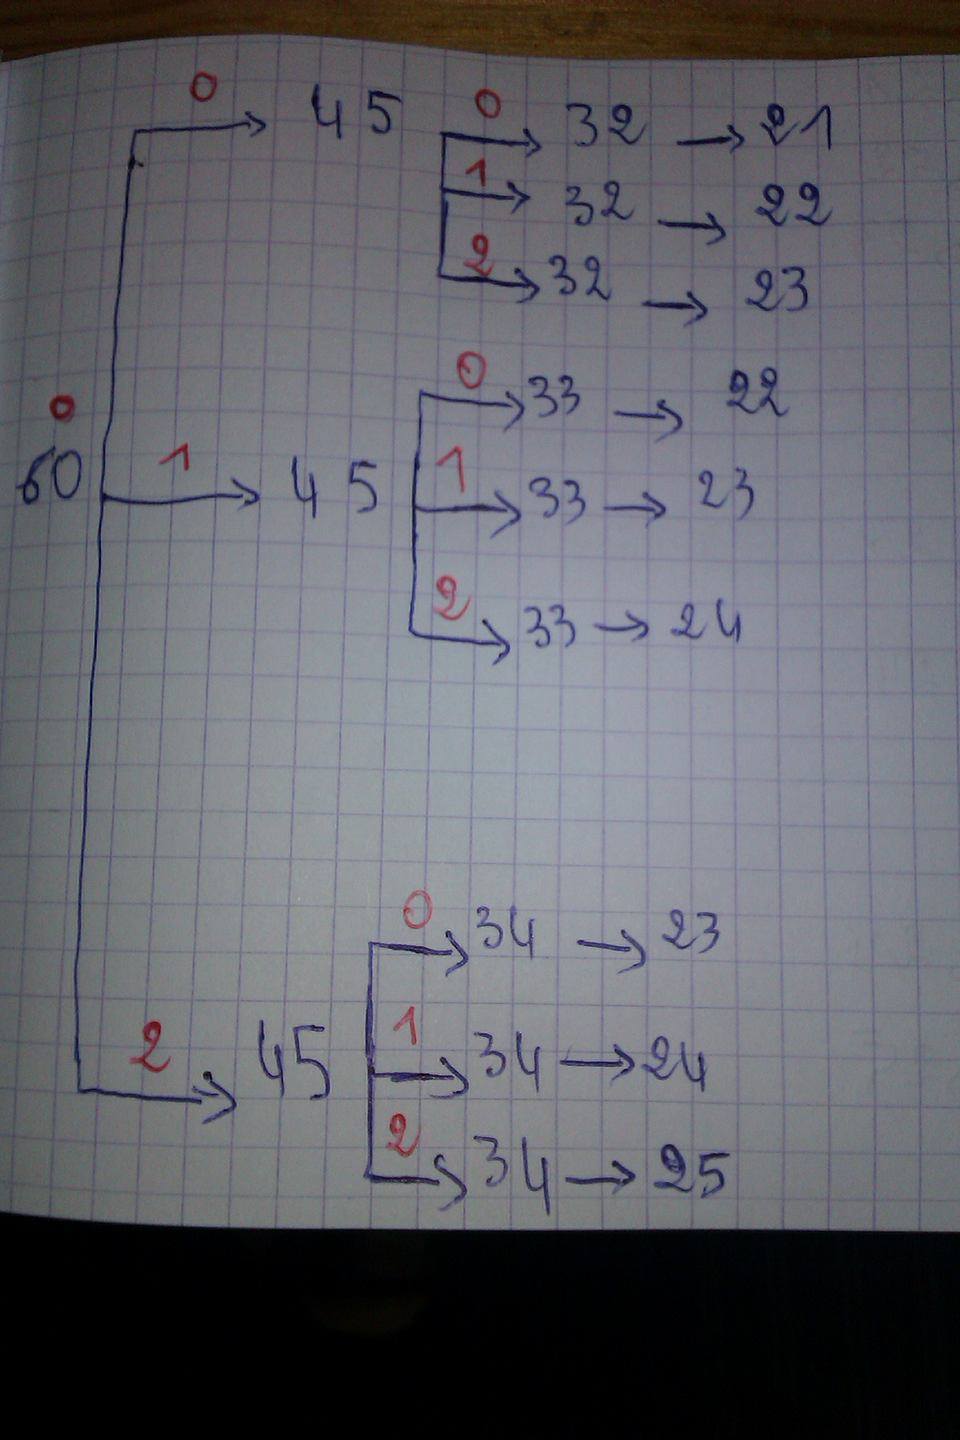 0 0
45 32 → 21
1
32 → 22
2
32 → 23
0
33 → 22
0
60 1 45 1 33 → 23
2
33 → 24
0
34 → 23
1
2 45 34 → 24
2
34 → 25